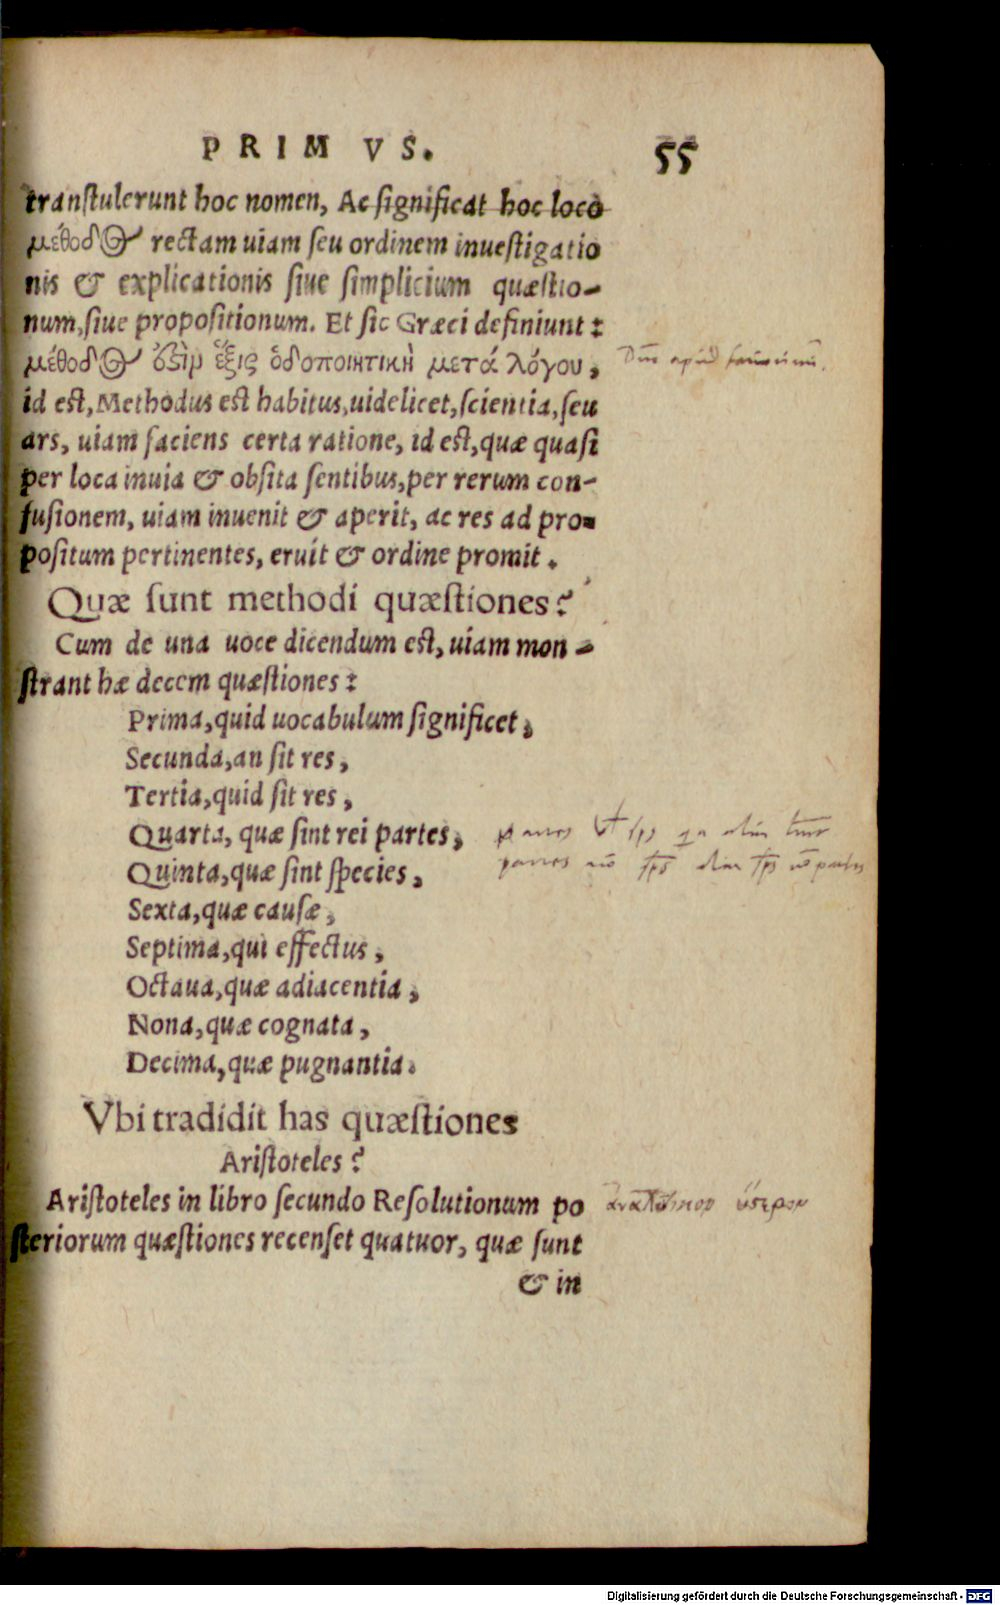 PRIMVS. 55
tranſtulerunt hoc nomen, Ac ſignificat hoc loco
μέθοδος rectam uiam ſeu ordinem inueſtigatio
nis & explicationis ſiue ſimplicium quæſtio-
num, ſiue propoſitionum. Et ſic Græci definiunt:
μέθοδος ὀξὶν ἕξις ὁδοποιητικὴ μετά λόγου,
id eſt, Methodus eſt habitus, uidelicet, ſcientia, ſeu
ars, uiam faciens certa ratione, id eſt, quæ quaſi
per loca inuia & obſita ſentibus, per rerum con-
fuſionem, uiam inuenit & aperit, ac res ad pro-
poſitum pertinentes, eruit & ordine promit.
Quæ ſunt methodi quæſtiones?
Cum de una uoce dicendum eſt, uiam mon-
ſtrant hæ decem quæſtiones:
Prima, quid uocabulum ſignificet,
Secunda, an ſit res,
Tertia, quid ſit res,
Quarta, quæ ſint rei partes,
Quinta, quæ ſint ſpecies,
Sexta, quæ cauſæ,
Septima, qui effectus,
Octaua, quæ adiacentia,
Nona, quæ cognata,
Decima, quæ pugnantia.
Vbi tradidit has quæſtiones
Ariſtoteles?
Ariſtoteles in libro ſecundo Reſolutionum po
ſteriorum quæſtiones recenſet quatuor, quæ ſunt
& in
Digitalisierung gefördert durch die Deutsche Forschungsgemeinschaft - DFG